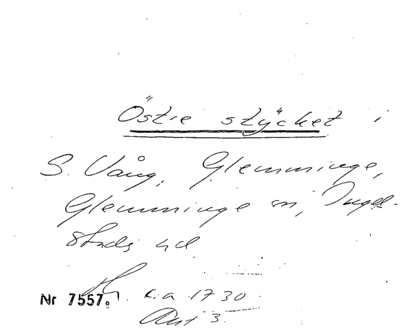 Östre stycket i
S. Vång, Glemminge,
Glemminge sn, Ingel-
stads hd
Nr 7557. L.a 1730
Akt 3.